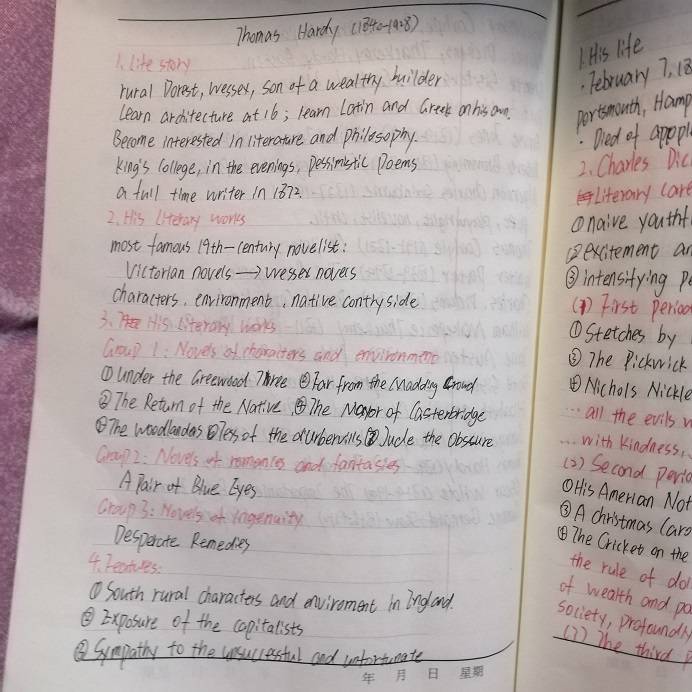 Thomas Hardy (1840-1928)
1. Life story
rural Dorest, Wessex, son of a wealthy builder
Learn architecture at 16; learn Latin and Greek on his own.
Become interested in literature and philosophy.
King's College, in the evenings, pessimistic poems
a full time writer in 1872.
2. His literary works
most famous 19th-century novelist:
Victorian novels → Wessex novels
characters, environment, native contryside
3. His literary works
Group 1: Novels of characters and environment
① Under the Greewood Three ② Far from the Madding Crowd
③ The Return of the Native ④ The Mayor of Casterbridge
⑤ The Woodlandas ⑥ Tess of the d'Urbervills ⑦ Jude the Obscure
Group 2: Novels of romances and fantasies
A Pair of Blue Eyes
Group 3: Novels of Ingenuity
Desperate Remedies
4. Features:
① South rural characters and enviroment in England.
② Exposure of the capitalists
③ Sympathy to the unsuccessful and unfortunate
年 月 日 星期
1. His life
· February 7, 18
Portsmouth, Hamp
· Died of apopl
2. Charles Dic
Literary Care
① naive youthf
② excitement an
③ intensifying pe
(1) First period
① Stetches by
③ The Pickwick
④ Nichols Nickle
... all the evils w
... with kindness,
(2) Second perio
① His Amerian Not
③ A Christmas Caro
④ The Cricket on the
the rule of dol
of wealth and po
society, profoundly
(3) The third p